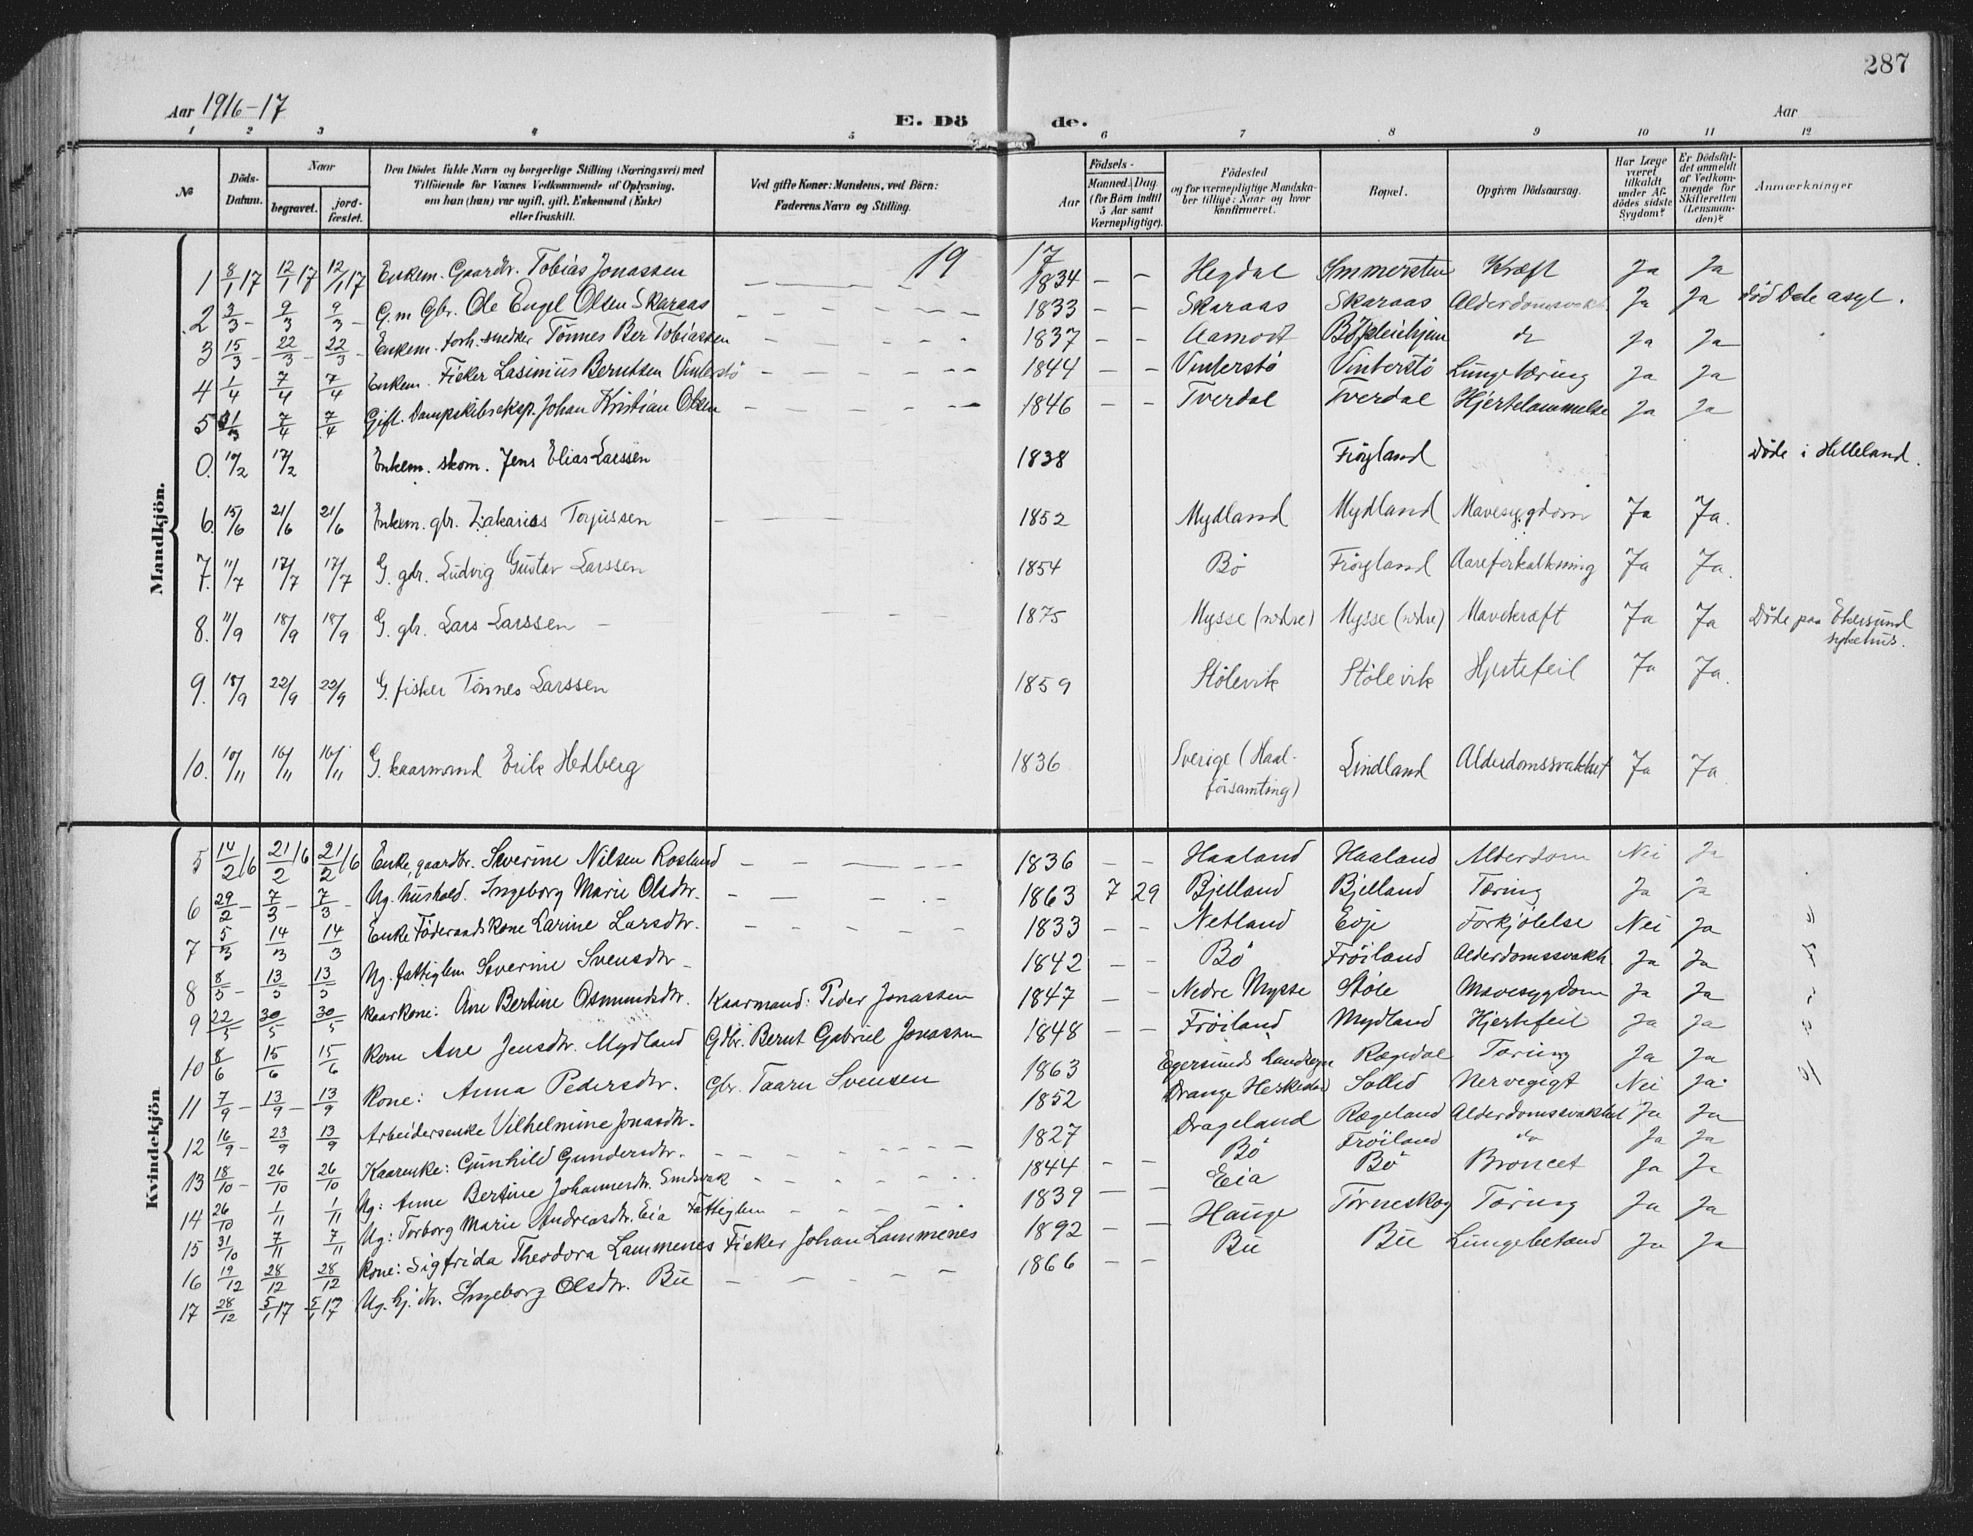 287
Aar 1916-17 E. Dö de. Aar
1 2 3 4 5 6 7 8 9 10 11 12
№ Døds-Datum. Naar begravet. jordfæstet. Den Dødes fulde Navn og borgerlige Stilling (Næringsvei) med Tilføiende for Voxnes Vedkommende af Oplysning, om han (hun) var ugift, gift, Enkemand (Enke) eller fraskilt. Ved gifte Koner: Mandens, ved Börn: Faderens Navn og Stilling. Födsels- Aar Maaned. Dag. (for Börn indtil 5 Aar samt Værnepligtige). Födested og for værnepligtige Mandskaber tillige: Naar og hvor konfirmeret. Bopæl. Opgiven Dödsaarsag. Har Læge været tilkaldt under Afdödes sidste Sygdom? Er Dödsfaldet anmeldt af Vedkommende for Skifteretten (Lensmanden)? Anmærkninger
Mandkjön.
19 17
1 8/1 17 12/1 17 12/1 17 Enkem. Gaardbr. Tobias Jonassen — 1834 — — Hegdal Immerstein Kræft Ja Ja
2 3/3 — 9/3 9/3 — G.m Gbr. Ole Engel Olsen Skaraas — 1833 — — Skaraas Skaraas Alderdomsvakh Ja Ja död Dale asyl.
3 15/3 — 22/3 — 22/3 — Enkem. forh. snedker Tönnes Ber Tobiassen — 1837 — — Aamodt do Ja Ja
4 1/4 7/4 7/4 Enkem. Fisker Lasimius Berntsen Vinterstö — 1844 — — Vinterstö Vinterstö Lungetæring Ja Ja
5 31/3 7/4 7/4 Gift. Dampskibseksp. Johan Kristian Olsen — 1846 — — Tverdal Tverdal Hjertelammelse Ja Ja
0. 10/2 17/2 Enkem. skom. Jens Elias Larssen 1838 Fröyland Döde i Helleland.
6. 15/6 21/6 21/6 Enkem. gbr. Zakarias Torjussen — 1852 Mydland Mydland Mavesygdom Ja Ja.
7. 11/7 17/7 17/7 G. gbr. Ludvig Gustav Larssen 1854 Bö Fröyland Aareforkalkning Ja Ja.
8. 11/9 18/9 18/9 G. gbr. Lars Larssen — 1875 Mysse (nedre) Mysse (nedre) Mavekræft Ja Ja Döde paa Ekersund sykehus.
9. 18/9 22/9 22/9 G. fisker Tönnes Larssen 1859 Stölevik Stölevik Hjertefeil Ja Ja.
10. 10/11 16/11 16/11 G. kaarmand Erik Hedberg 1836 Sverige (Haalförsamting) Lindland Alderdomssvakhet Ja Ja
Kvindekjön
5 14/2 16 21/2 16 21/2 16 Enke, gaardbr. Severine Nilsen Rosland — 1836 — — Haaland Haaland Alderdom Nei Ja
6 29/2 — 7/3 — 7/3 — Ug. hushold. Ingeborg Marie Olsdtr. — 1863 7 29 Bjelland Bjelland Tæring Ja Ja
7 5/3 14/3 14/3 Enke Föderaadskone Larine Larsdtr. — 1833 — — Netland Evje Forkjölelse Nei Ja
8 8/5 — 13/5 13/5 Ug. fattiglem Severine Svensdtr — 1842 — — Bö Fröiland Alderdomssvakh Ja Ja
9 22/5 30/5 30/5 Kaarkone: Ane Bertine Osmundsdtr. Kaarmand: Peder Jonassen 1847 — — Nedre Mysse Stöle Mavesygdom Ja Ja
10 8/6 15/6 15/6 Kone Ane Jensdtr. Mydland Gdbr. Bernt Gabriel Jonassen 1848 — — Fröiland Mydland Hjertefeil Ja Ja
11 7/9 — 13/9 — 13/9 Kone: Anna Pedersdtr. Gbr. Taaru Svensen 1863 Egersunds Landsogn Rægedal Tæring Ja Ja
12 16/9 — 23/9 13/9 Arbeidersenke Vilhelmine Jonasdtr. 1852 Drange Heskestad Solled Nervegigt Nei Ja
13 18/10 — 26/10 26/10 Kaarenke: Gunhild Gundersdtr. — 1827 Drageland Rægeland Alderdomssvakhet Ja Ja
14 26/10 1/11 1/11 Ug: Anne Bertine Johannesdtr. — 1844 — — Bö Fröiland do Ja Ja
15 31/10 7/11 7/11 Ug: Torborg Marie Andreasdtr. Eia Fattiglem — 1839 — — Eia Bö Broncet Ja Ja
16 19/12 28/12 28/12 Kone: Sigfrida Theodora Lammenes Fisker Johan Lammenes 1892 — — Hauge Törneskog Tæring Ja Ja
17 28/12 5/1 17 5/1 17 Ug. hj. dtr. Ingeborg Olsdtr. Bu — 1866 — — Bu Bu Lungebetænd Ja Ja